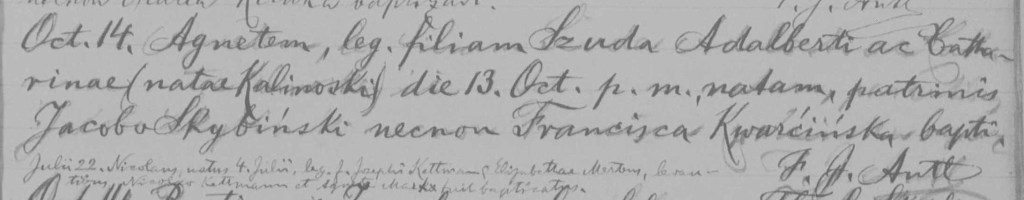 Oct. 14. Agnetem, leg. filiam Szuda Adalberti ac Catha-
rinae (natae Kalinoski) die 13. Oct. p. m. natam, patrinis
Jacobo Skybiński necnon Francisca Kwarcińska bapti-
Julii 22. Nicolaus, natus 4. Julii, leg. f. Josephi Kettmann & Elizabethae Mertens, levan-
F. J. Antl
tibus Kettmann et fuit baptizatus.